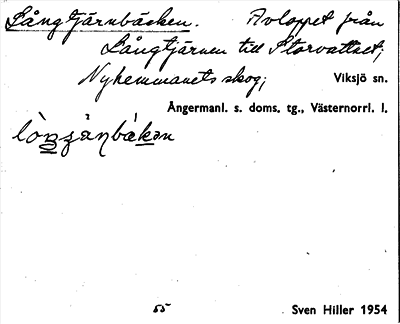 Långtjärnbäcken. Avloppet från
Långtjärnen till Storvattnet;
Nyhemmanets skog; Viksjö sn.
Ångermanl. s. doms. tg., Västernorrl. l.
55 Sven Hiller 1954